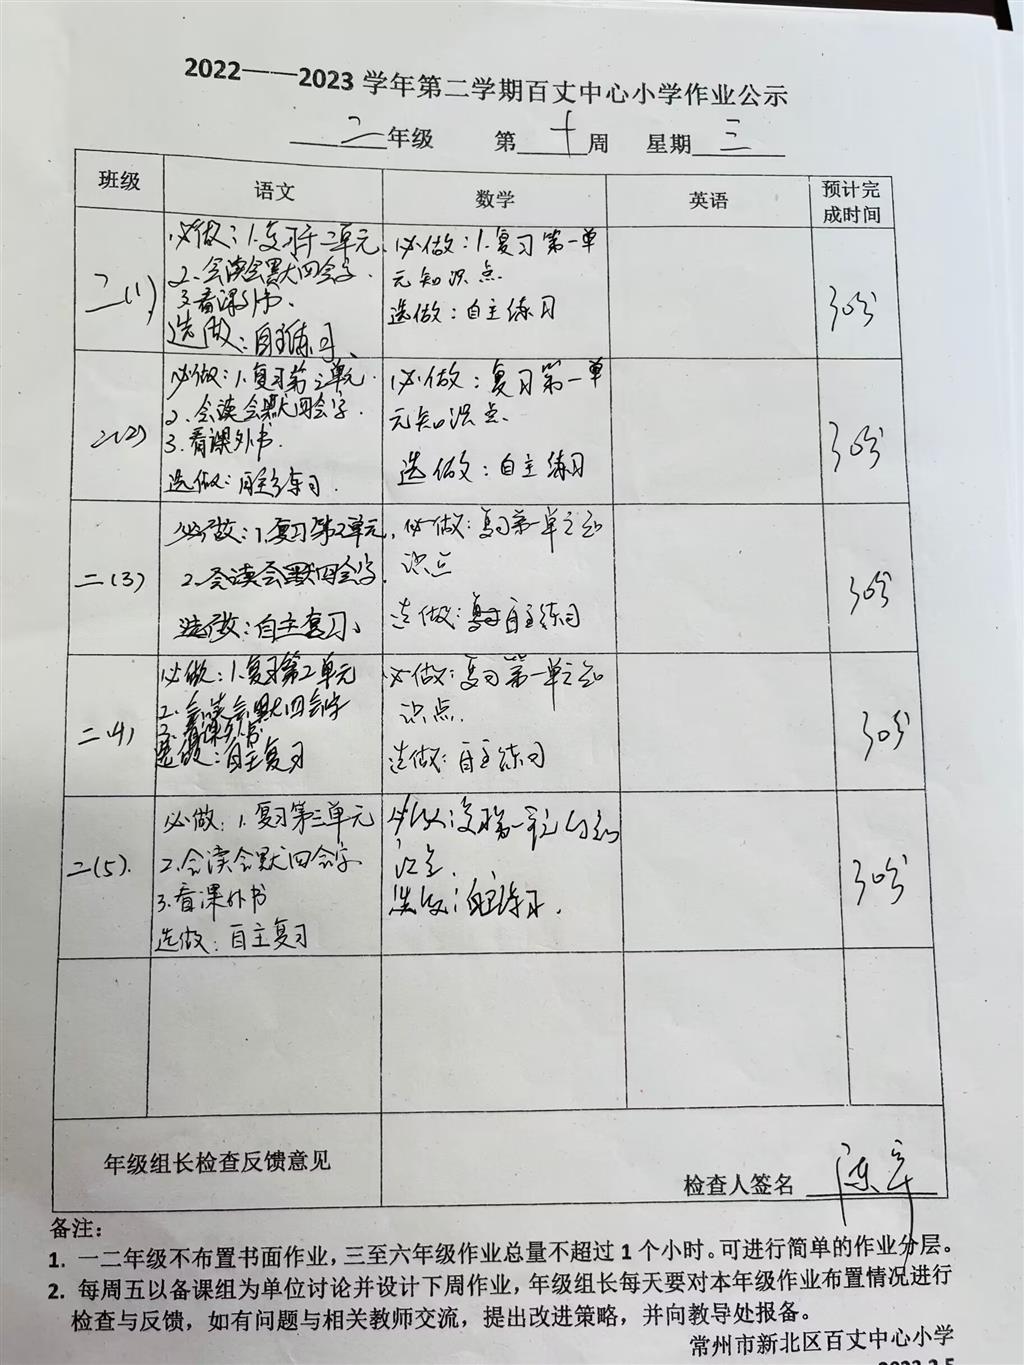 2022——2023 学年第二学期百丈中心小学作业公示
二年级 第十周 星期三
班级 语文 数学 英语 预计完成时间
二(1)
必做：1.复习第二单元.
2.会读会默四会字.
3.看课外书.
选做：自主练习、
必做：1.复习第一单
元知识点.
选做：自主练习
30分
二(2)
必做：1.复习第三单元.
2.会读会默四会字.
3.看课外书.
选做：自主练习.
必做：复习第一单
元知识点.
选做：自主练习
30分
二(3)
必做：1.复习第2单元,
2.会读会默四会字.
选做：自主复习、
必做：复习第一单元知
识点
选做：自主练习
30分
二(4)
必做：1.复习第2单元
2.会读会默四会字
3.看课外书
选做：自主复习
必做：复习第一单元知
识点.
选做：自主练习
30分
二(5).
必做：1.复习第三单元
2.会读会默四会字
3.看课外书
选做：自主复习
必做：复习第一单元的知
识点.
选做：自主练习.
30分
年级组长检查反馈意见
检查人签名 陈
备注：
1. 一二年级不布置书面作业，三至六年级作业总量不超过 1 个小时。可进行简单的作业分层。
2. 每周五以备课组为单位讨论并设计下周作业，年级组长每天要对本年级作业布置情况进行
检查与反馈，如有问题与相关教师交流，提出改进策略，并向教导处报备。
常州市新北区百丈中心小学